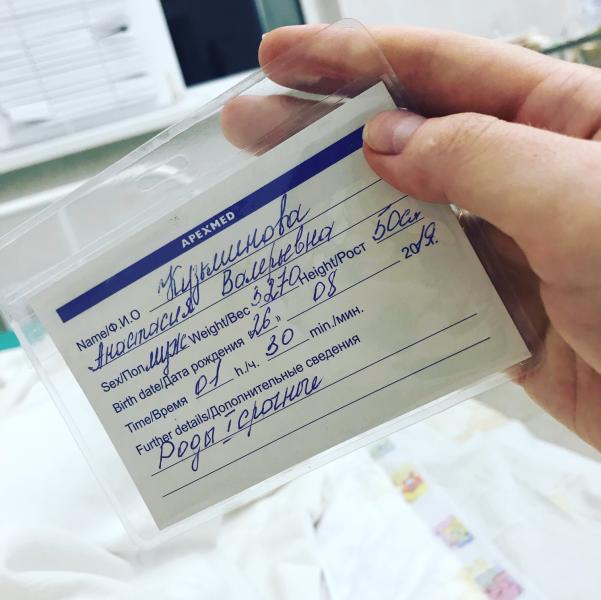 APEXMED
Name/Ф.И.О Кузьминова
Анастасия Валерьевна
Sex/Пол муж Weight/Вес 3270 Height/Рост 50см
Birth date/Дата рождения "26" 08 2019.
Time/Время 01 h./ч. 30 min./мин.
Further details/Дополнительные сведения
Роды I срочные